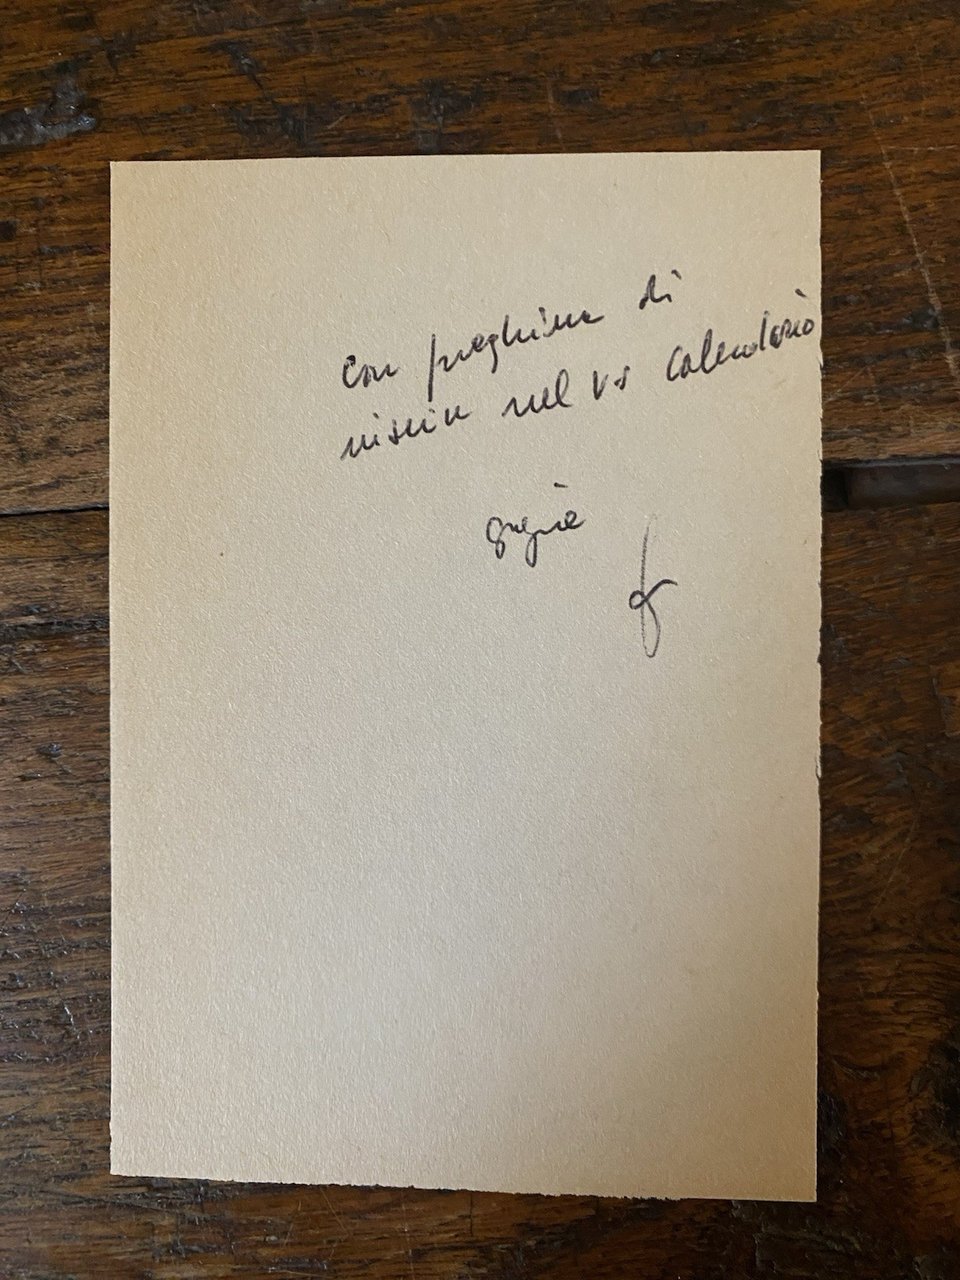 Con preghiera di
inserire nel Vs Calendario
grazie